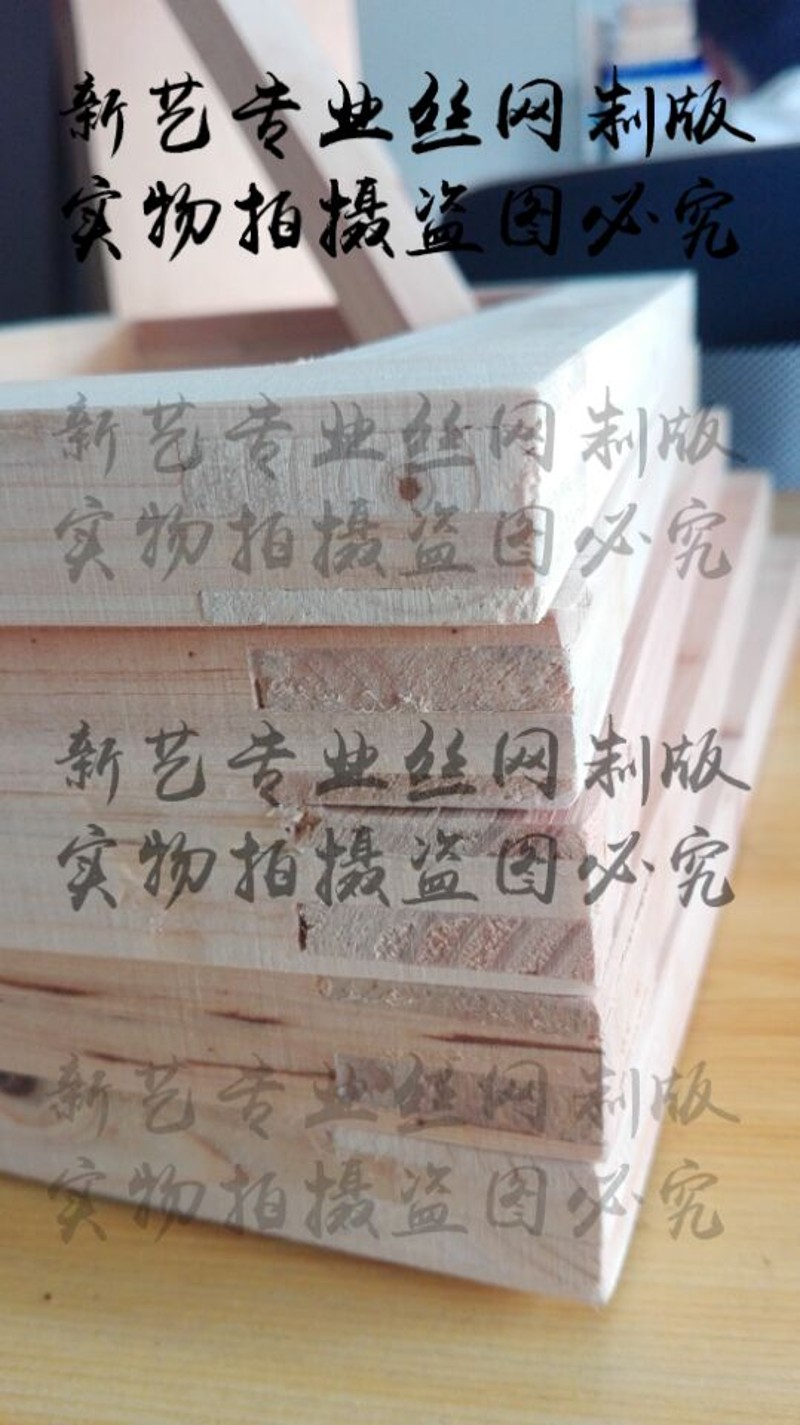 新艺专业丝网制版
实物拍摄盗图必究
新艺专业丝网制版
实物拍摄盗图必究
新艺专业丝网制版
实物拍摄盗图必究
新艺专业丝网制版
实物拍摄盗图必究